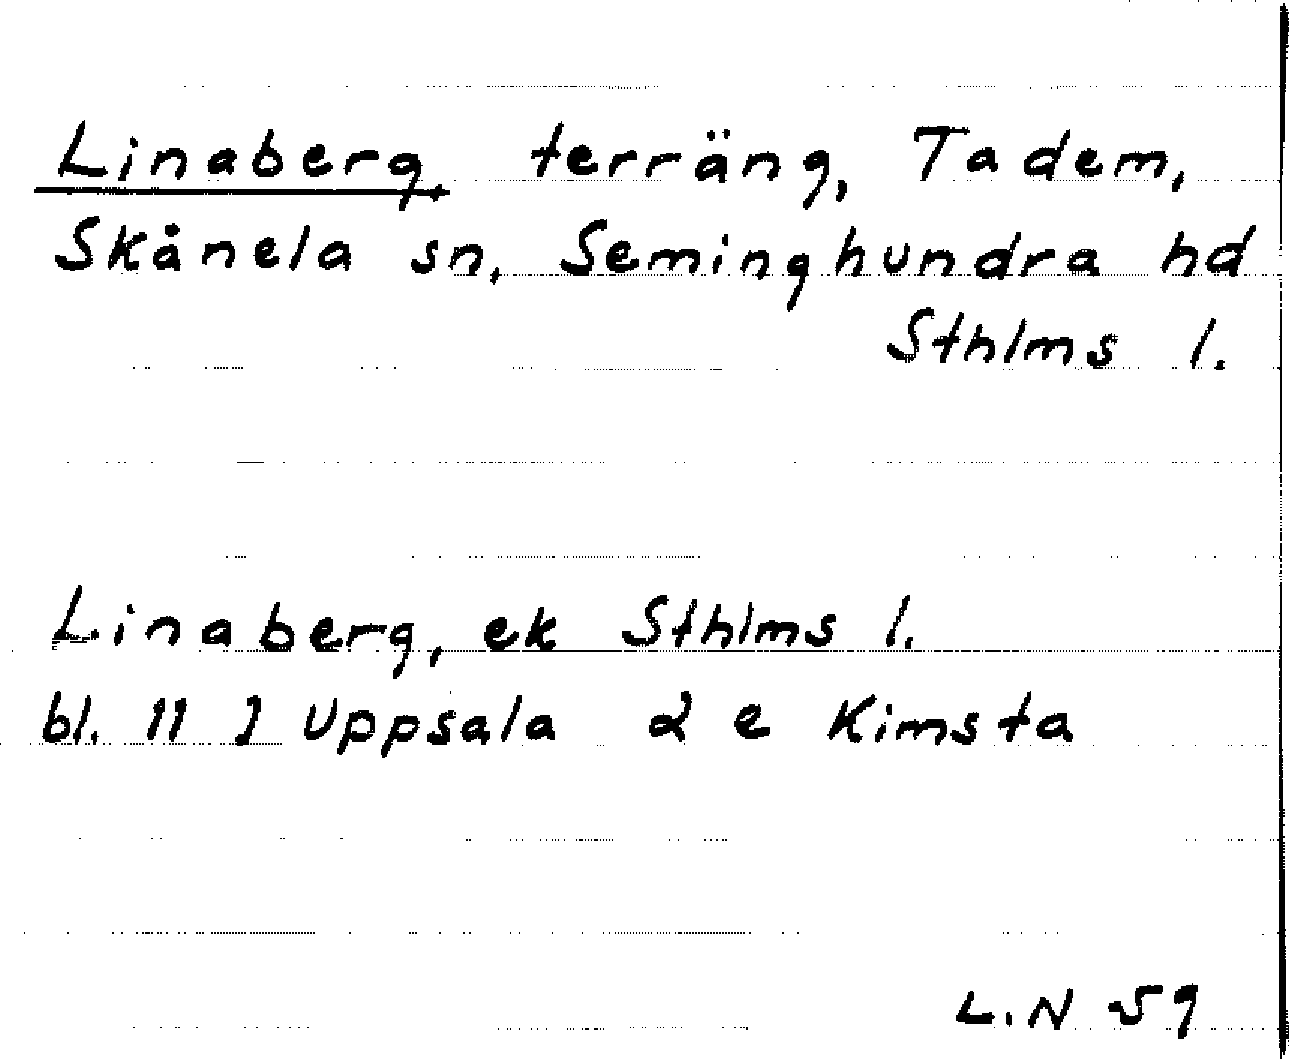 Linaberg, terräng, Tadem,
Skånela sn, Seminghundra hd
Sthlms l.
Linaberg, ek Sthlms l.
bl. 11 I Uppsala d e Kimsta
L.N 59